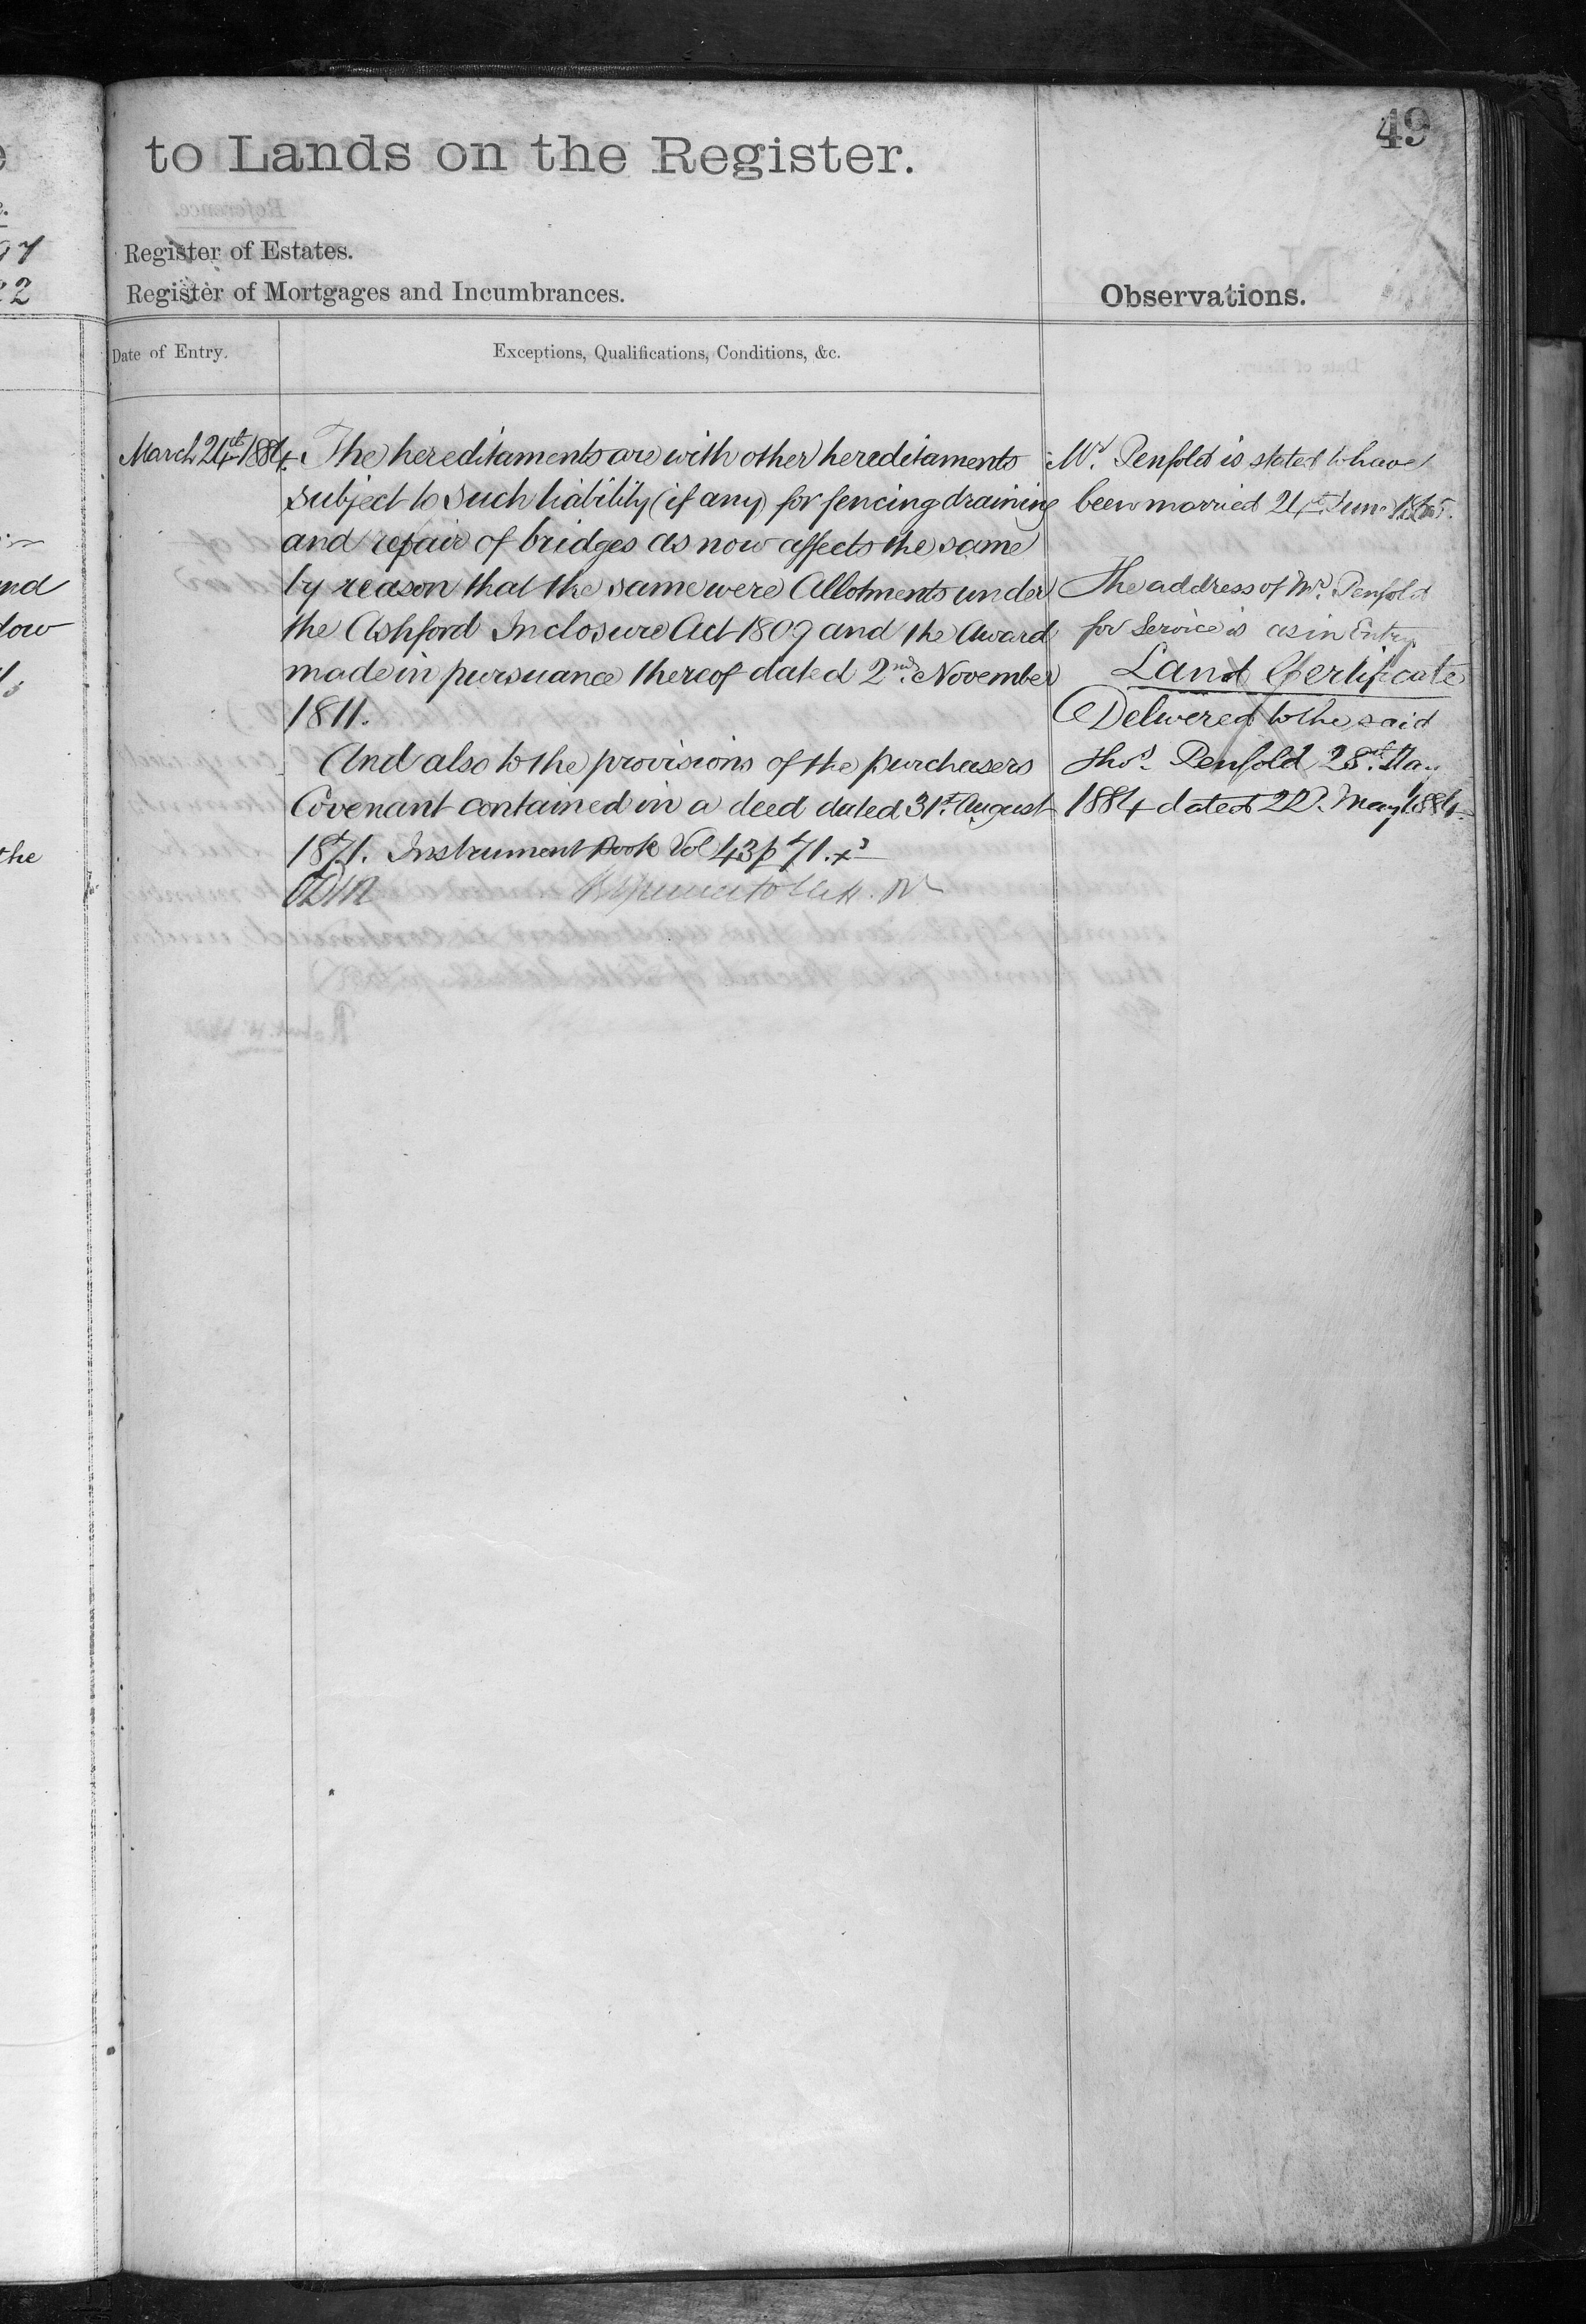 49
to Lands on the Register.
Register of Estates.
Register of Mortgages and Incumbrances.
Observations.
Date of Entry.
Exceptions, Qualifications, Conditions, &c.
March 24th 1884. The hereditaments are with other hereditaments
subject to such liability (if any) for fencing draining
and repair of bridges as now affects the same
by reason that the same were Allotments under
the Ashford Inclosure Act 1809 and the Award
made in pursuance thereof dated 2nd. November
1811.
And also to the provisions of the purchasers
Covenant contained in a deed dated 31st. August
1871. Instrument Book Vol 43 p 71.
Mr. Penfold is stated to have
been married June
The address of Mr. Penfold
for Service is as in Entry
Land Certificate
Delivered to the said
Thos. Penfold 28th. May
1884 dated 22d. May 1884.
97
22
nd
low
the